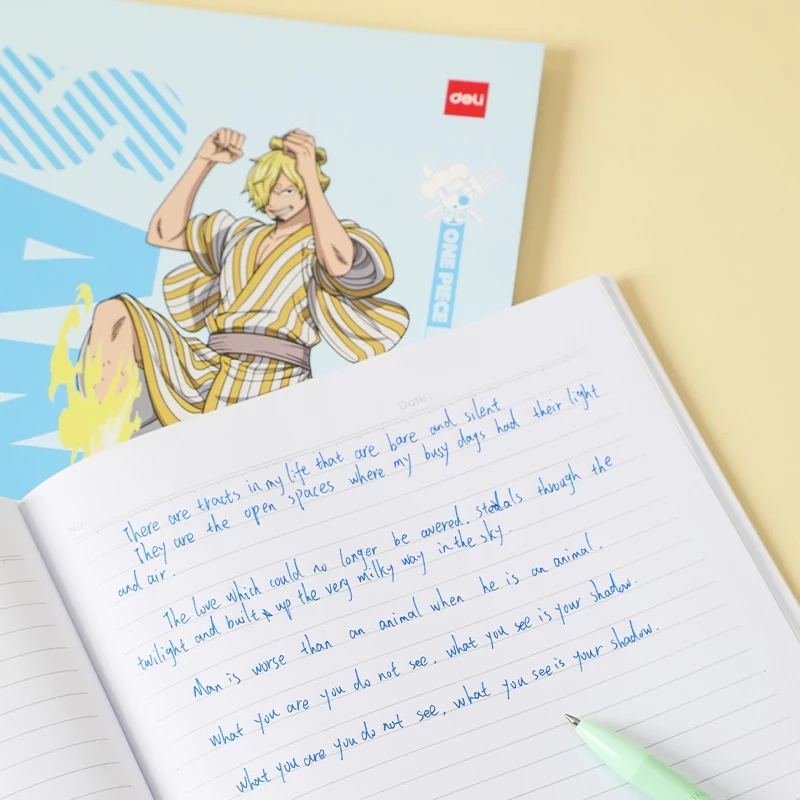 deli
ONE PIECE
Date:
NO
There are tracts in my life that are bare and silent
They are the open spaces where my busy days had their light
and air.
The love which could no longer be overed. steals through the
twilight and built up the very milky way in the sky
Man is worse than an animal when he is an animal.
what you are you do not see, what you see is your shadow.
what you are you do not see, what you see is your shadow.